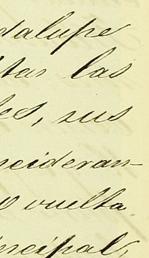 dalupe
itas las
les, sus
nsideran-
o vuelta.
incipal,